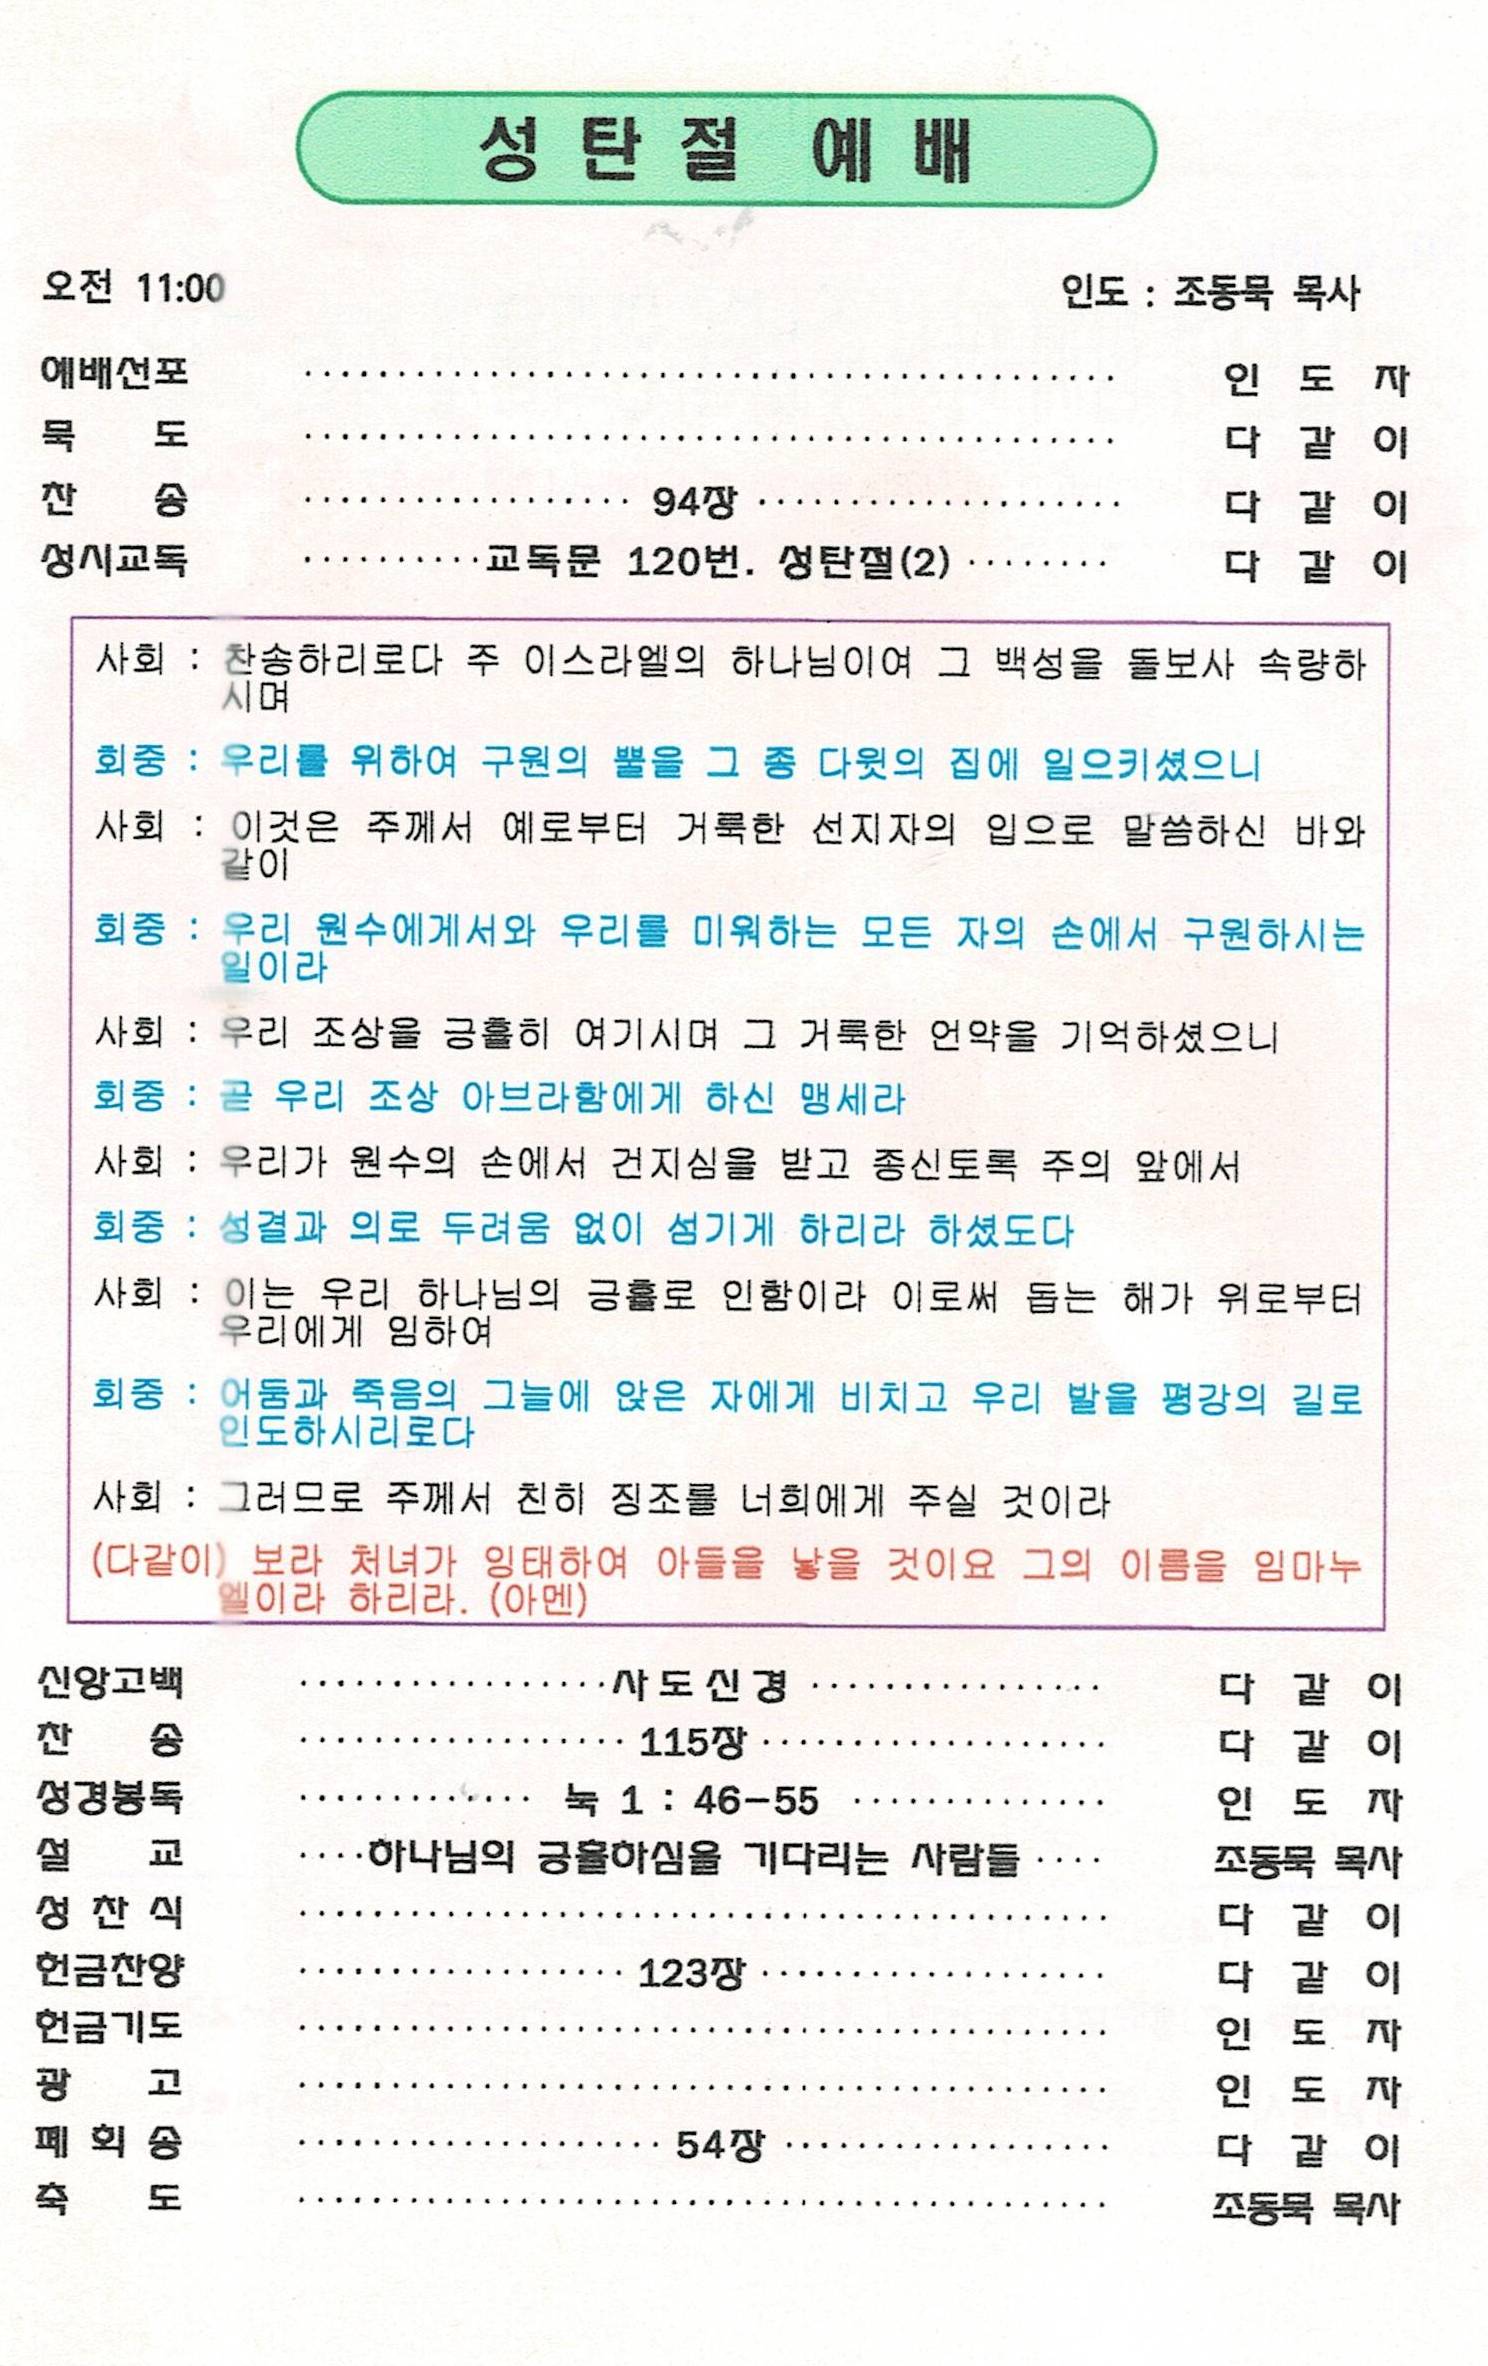 성 탄 절 예 배
오전 11:00 인도 : 조동묵 목사
예배선포 ············································ 인 도 자
묵 도 ············································ 다 같 이
찬 송 ·················· 94장 ···················· 다 같 이
성시교독 ··········교독문 120번. 성탄절(2) ········ 다 같 이
사회 : 찬송하리로다 주 이스라엘의 하나님이여 그 백성을 돌보사 속량하
시며
회중 : 우리를 위하여 구원의 뿔을 그 종 다윗의 집에 일으키셨으니
사회 : 이것은 주께서 예로부터 거룩한 선지자의 입으로 말씀하신 바와
같이
회중 : 우리 원수에게서와 우리를 미워하는 모든 자의 손에서 구원하시는
일이라
사회 : 우리 조상을 긍휼히 여기시며 그 거룩한 언약을 기억하셨으니
회중 : 곧 우리 조상 아브라함에게 하신 맹세라
사회 : 우리가 원수의 손에서 건지심을 받고 종신토록 주의 앞에서
회중 : 성결과 의로 두려움 없이 섬기게 하리라 하셨도다
사회 : 이는 우리 하나님의 긍휼로 인함이라 이로써 돋는 해가 위로부터
우리에게 임하여
회중 : 어둠과 죽음의 그늘에 앉은 자에게 비치고 우리 발을 평강의 길로
인도하시리로다
사회 : 그러므로 주께서 친히 징조를 너희에게 주실 것이라
(다같이) 보라 처녀가 잉태하여 아들을 낳을 것이요 그의 이름을 임마누
엘이라 하리라. (아멘)
신앙고백 ·················사도신경 ················ 다 같 이
찬 송 ·················· 115장 ··················· 다 같 이
성경봉독 ············· 눅 1 : 46-55 ·············· 인 도 자
설 교 ····하나님의 긍휼하심을 기다리는 사람들 ···· 조동묵 목사
성 찬 식 ············································ 다 같 이
헌금찬양 ·················· 123장 ··················· 다 같 이
헌금기도 ············································ 인 도 자
광 고 ············································ 인 도 자
폐 회 송 ···················· 54장 ·················· 다 같 이
축 도 ············································ 조동묵 목사